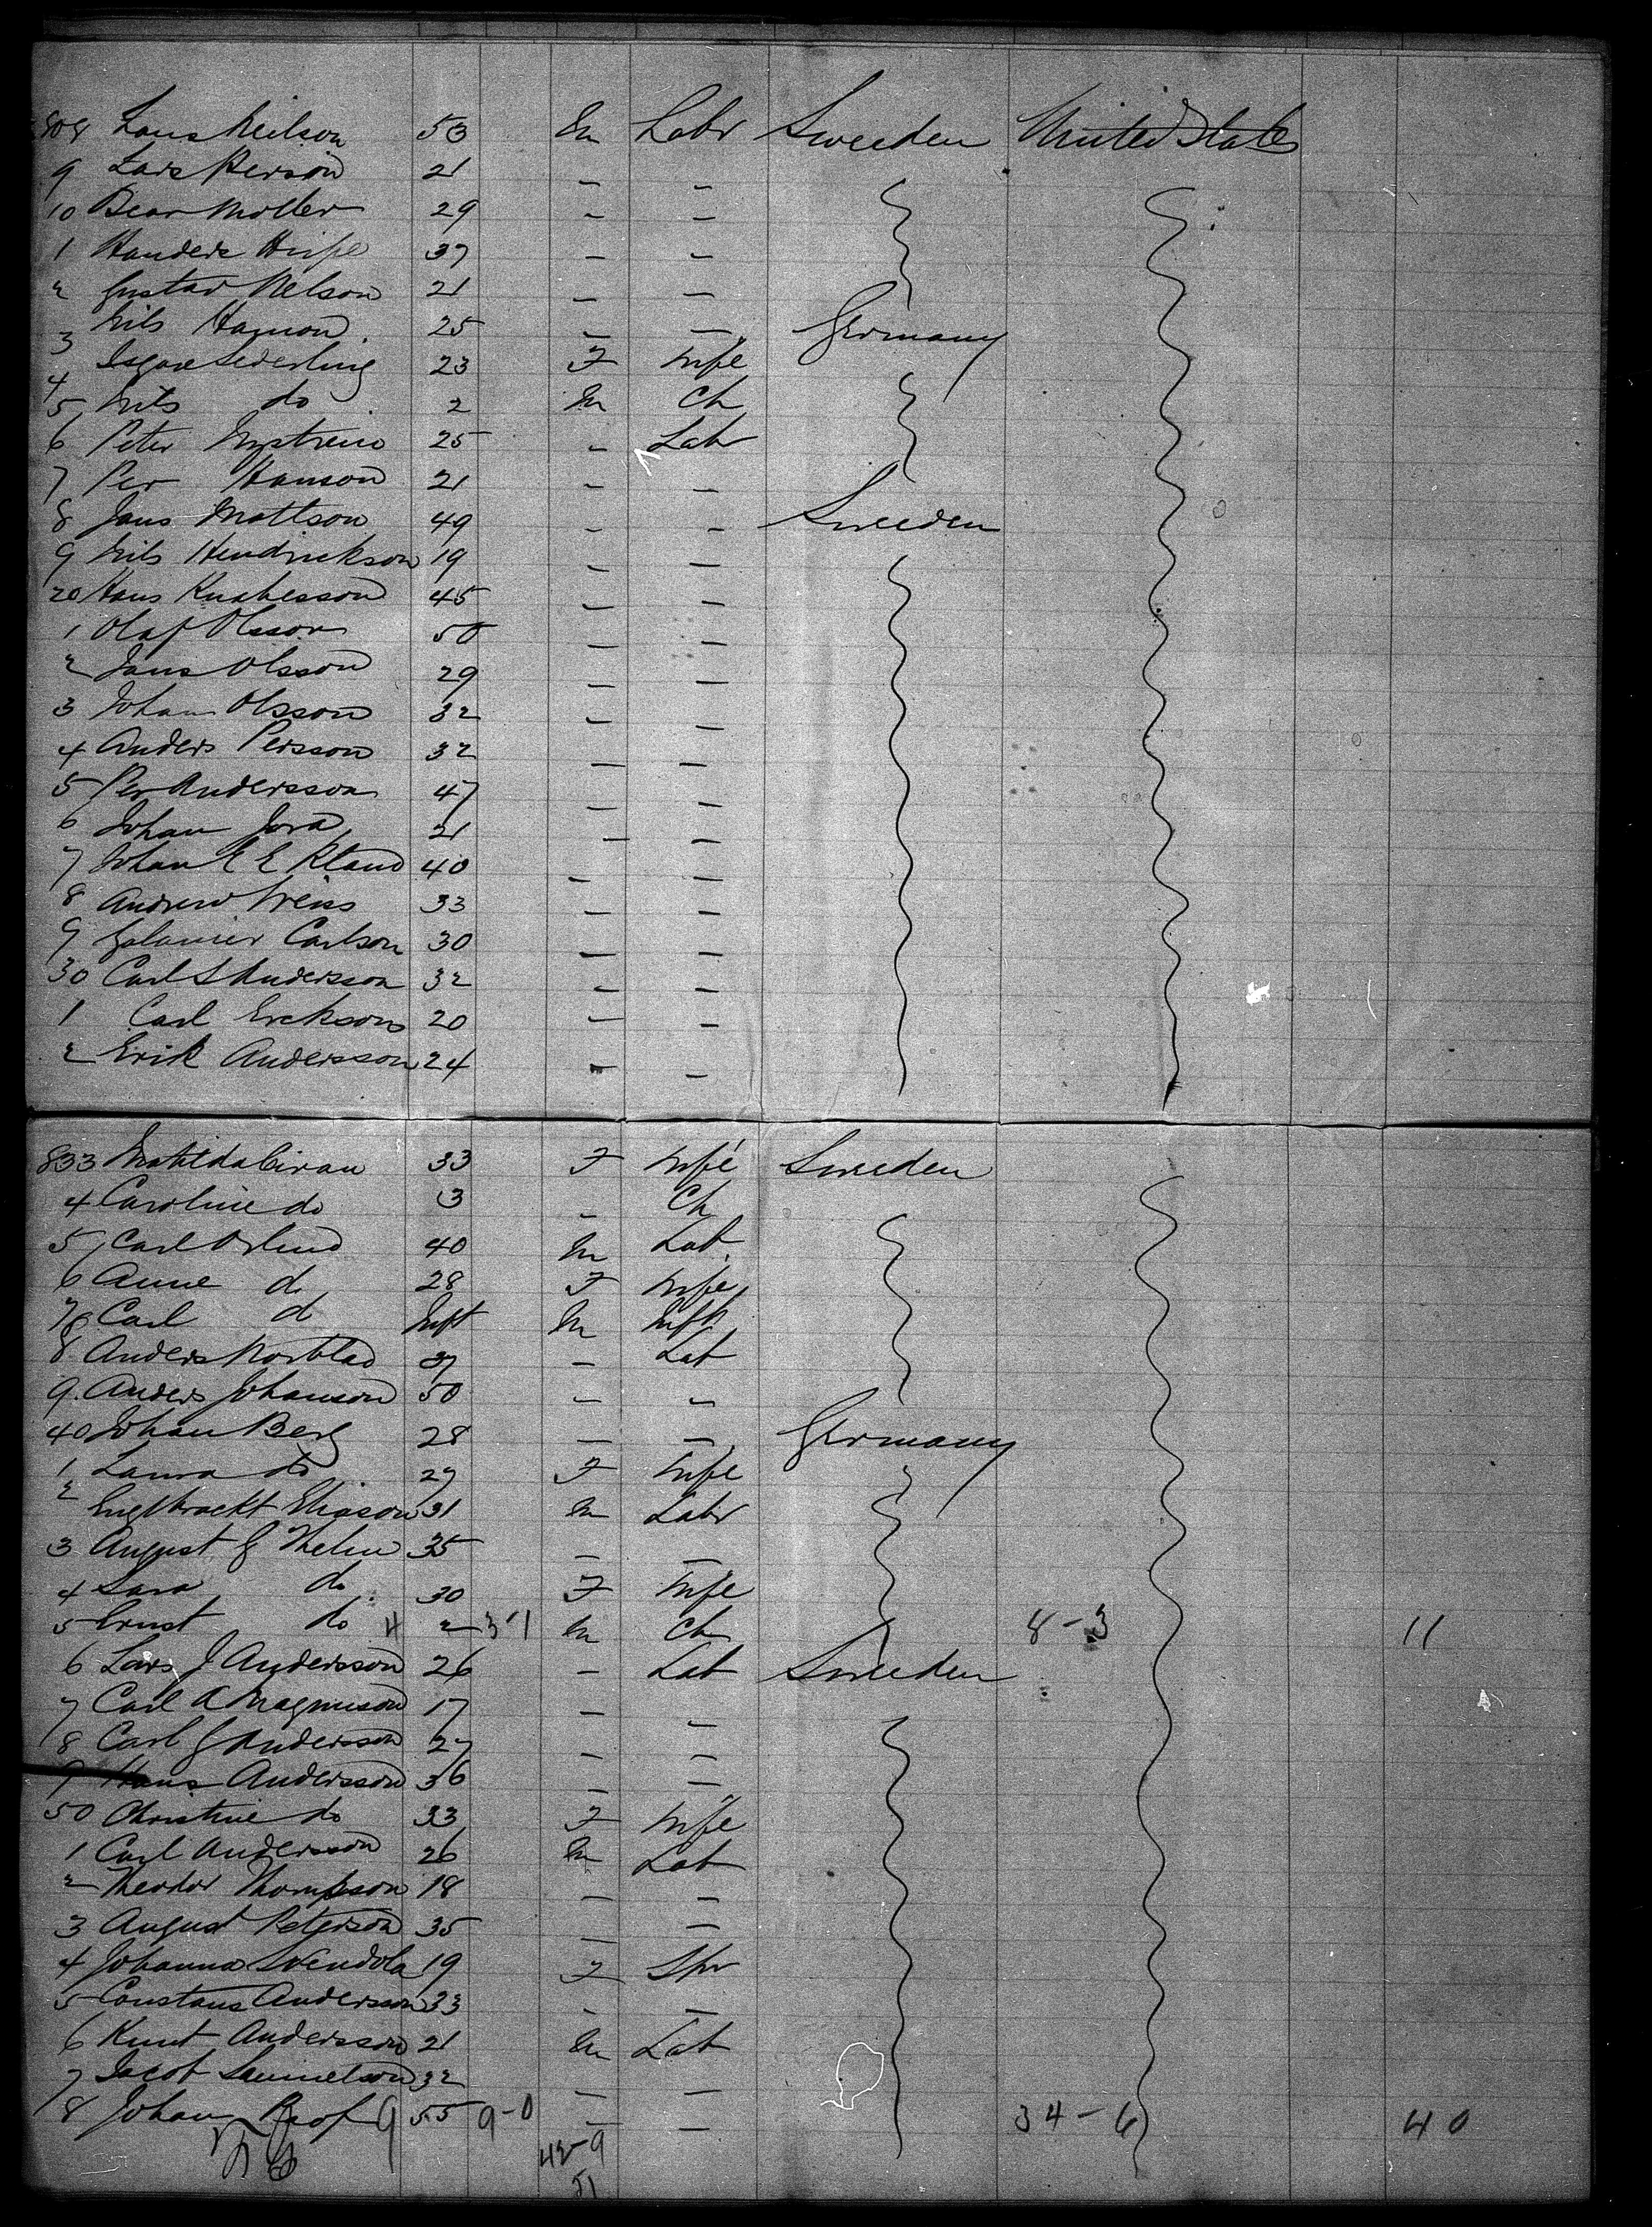 808 Lars Neilson 53 M Labr Sweeden United States
9 Lars Person 21 — —
10 Bear Moller 29 — —
1 37 — —
2 Gustav Nelson 21 — —
3 Nils Hanson 25 — — Germany
4 23 F Wife
5 Nils do 2 M Ch
6 Peter 25 — Labr
7 Per Hanson 21 — —
8 Jans Mattson 49 — — Sweeden
9 Nils Hendrickson 19 — —
20 Hans 45 — —
1 Olaf Olsson 50 — —
2 Jans Olsson 29 — —
3 Johan Olsson 32 — —
4 Anders Persson 32 — —
5 Per Andersson 47 — —
6 Johan 21 — —
7 Johan 40 — —
8 Andrew Weiss 33 — —
9 Carlson 30 — —
30 Carl S Andersson 32 — —
1 Carl Erckson 20 — —
2 Erik Andersson 24 — —
833 Matilda 33 F Wife Sweeden
4 Caroline do 3 — Ch
5 Carl 40 M Lab
6 Anne do 28 F Wife
7 Carl do Inft M Inft
8 Anders Norblad 37 — Lab
9 Anders Johanson 50 — —
40 Johan Berg 28 — — Germany
1 Laura do 27 F Wife
2 Eliason 31 M Labr
3 August G Thelin 35 — —
4 Sara do 30 F Wife
5 Ernst do 4 2 3-1 M Ch 8-3 11
6 Lars J Andersson 26 — Lab Sweeden
7 Carl A Magnuson 17 — —
8 Carl G Andersson 27 — —
9 Hans Andersson 36 — —
50 Christine do 33 F Wife
1 Carl Andersson 26 M Lab
2 Theodor Thompson 18 — —
3 August Peterson 35 — —
4 Johanna 19 F Spr
5 Constans Andersson 33 — —
6 Knut Andersson 21 M Lab
7 Jacob Samuelson 32 — —
8 Johan 9 55 9-0 — — 34-6 40
42-9
51